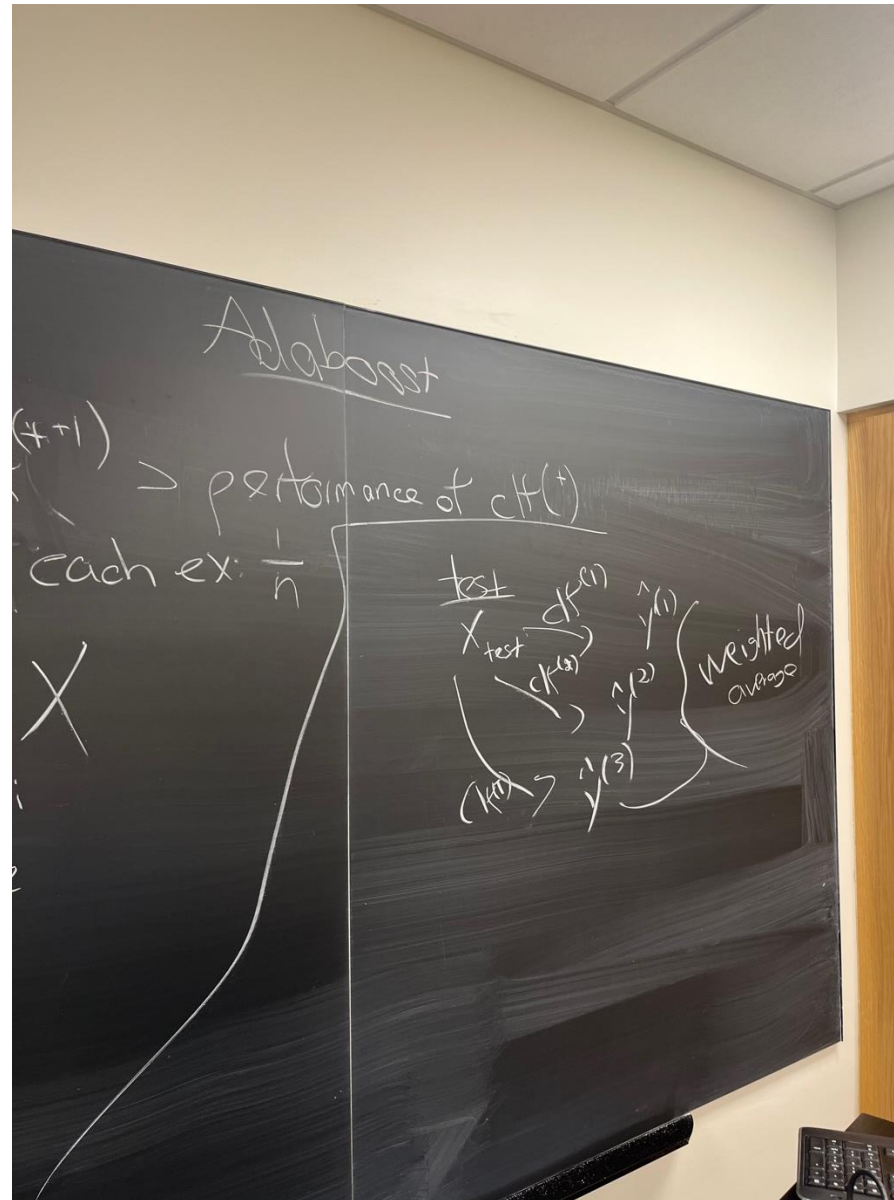 Adaboost
(t+1)
> performance of clf(t)
each ex: 1/n
X
i
e
test
X_test clf^(1) ŷ^(1)
clf^(2) ŷ^(2)
ŷ^(3)
weighted
average